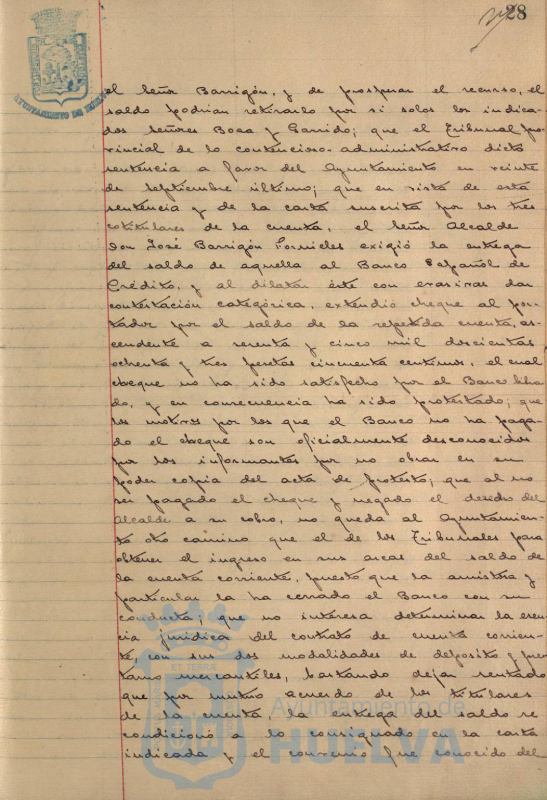 28
AYUNTAMIENTO DE HUELVA
el Señor Barrigón, y de prosperar el recurso, el
saldo podrían retirarlo por si solos los indica-
dos Señores Boza y Garrido; que el Tribunal pro-
vincial de lo contencioso-administrativo dictó
sentencia a favor del Ayuntamiento en veinte
de septiembre último; que en vista de esta
sentencia y de la carta suscrita por los tres
cotitulares de la cuenta, el Señor Alcalde
Don José Barrigón Fornieles exigió la entrega
del saldo de aquella al Banco Español de
Crédito, y al dilatar éste con evasivas dar
contestación categórica, extendió cheque al por-
tador por el saldo de la repetida cuenta, as-
cendente a setenta y cinco mil doscientas
ochenta y tres pesetas cincuenta centimos, el cual
cheque no ha sido satisfecho por el Banco libra-
do, y en consecuencia ha sido protestado; que
los motivos por los que el Banco no ha paga-
do el cheque son oficialmente desconocidos
por los informantes por no obrar en su
poder copia del acta de protesto; que al no
ser pagado el cheque y negado el derecho del
Alcalde a su cobro, no queda al Ayuntamien-
to otro camino que el de los Tribunales para
obtener el ingreso en sus arcas del saldo de
la cuenta corriente, puesto que la amistosa y
particular la ha cerrado el Banco con su
conducta; que no interesa determinar la esen-
cia jurídica del contrato de cuenta corrien-
te, con sus dos modalidades de deposito y pres-
tamo mercantiles, bastando dejar sentado
que por mutuo acuerdo de los titulares
de la cuenta, la entrega del saldo se
condicionó a lo consignado en la carta
indicada y el convenio fue conocido del
Ayuntamiento de
HUELVA